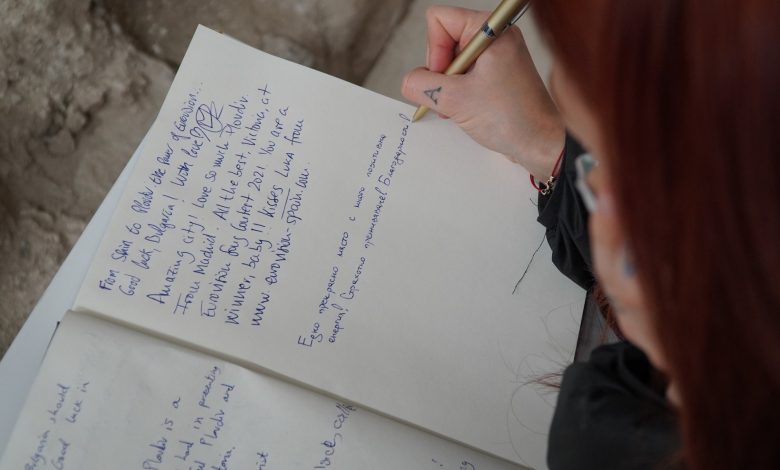 From Spain to Plovdiv the Power of Eurovision...
Good luck, Bulgaria! With love
Amazing city! Love so much Plovdiv.
From Madrid. All the best, Victoria, at
Eurovision Song Contest 2021. You are a
winner, baby!! Kisses Luka from
www.eurovision-spain.com.
Едно прекрасно място с много позитивна
енергия! Страхотно преживяване! Благодарности!
A
Bulgaria should
Good luck in
Plovdiv is a
in presenting
Plovdiv and